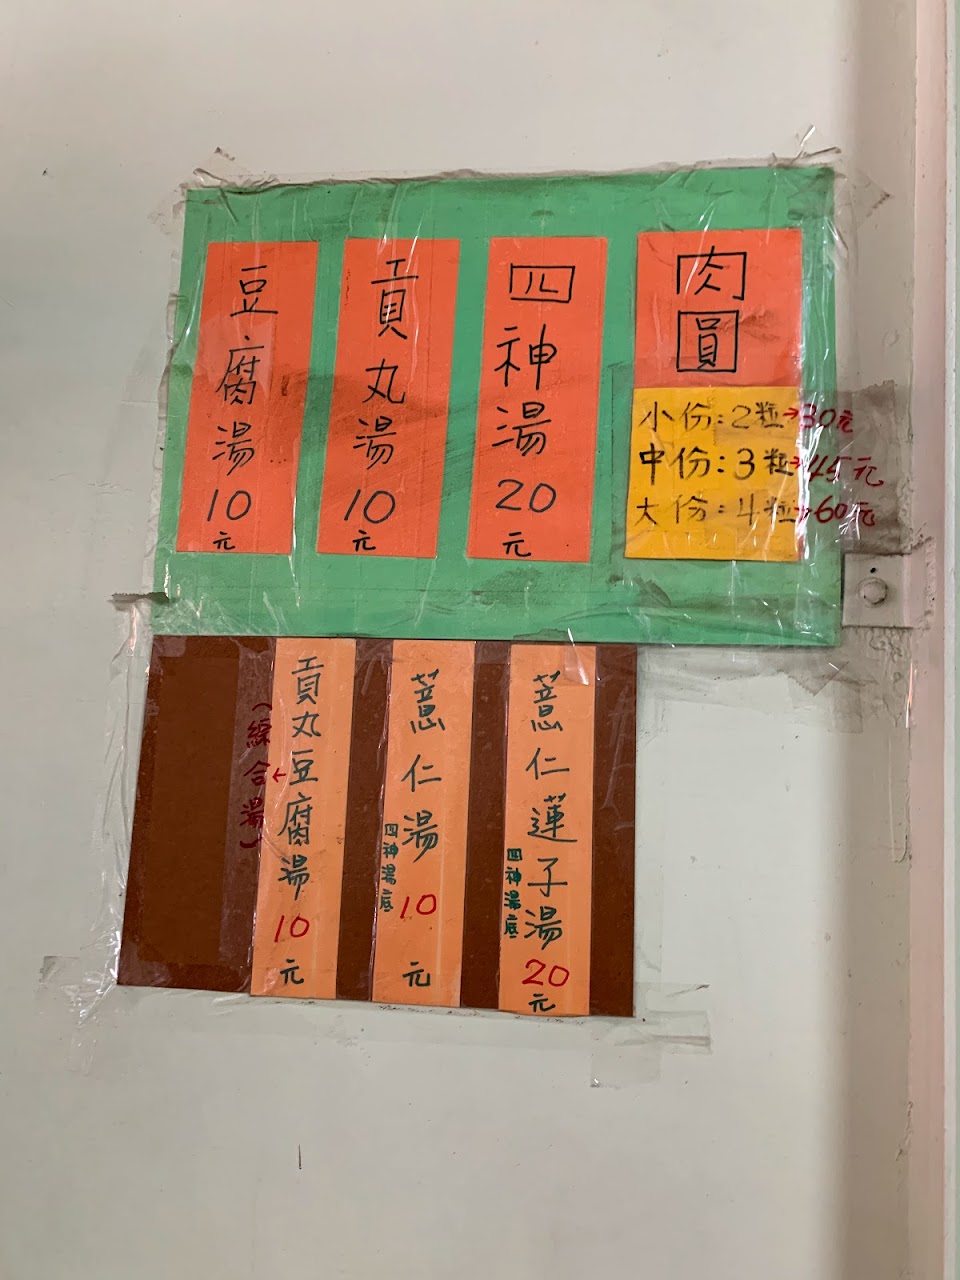 肉圓
小份:2粒→30元
中份:3粒→45元
大份:4粒→60元
四神湯20元
貢丸湯10元
豆腐湯10元
薏仁蓮子湯20元
四神湯底
薏仁湯10元
四神湯底
貢丸豆腐湯10元
←(綜合湯)